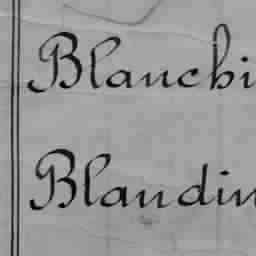 Blanchi
Blandin